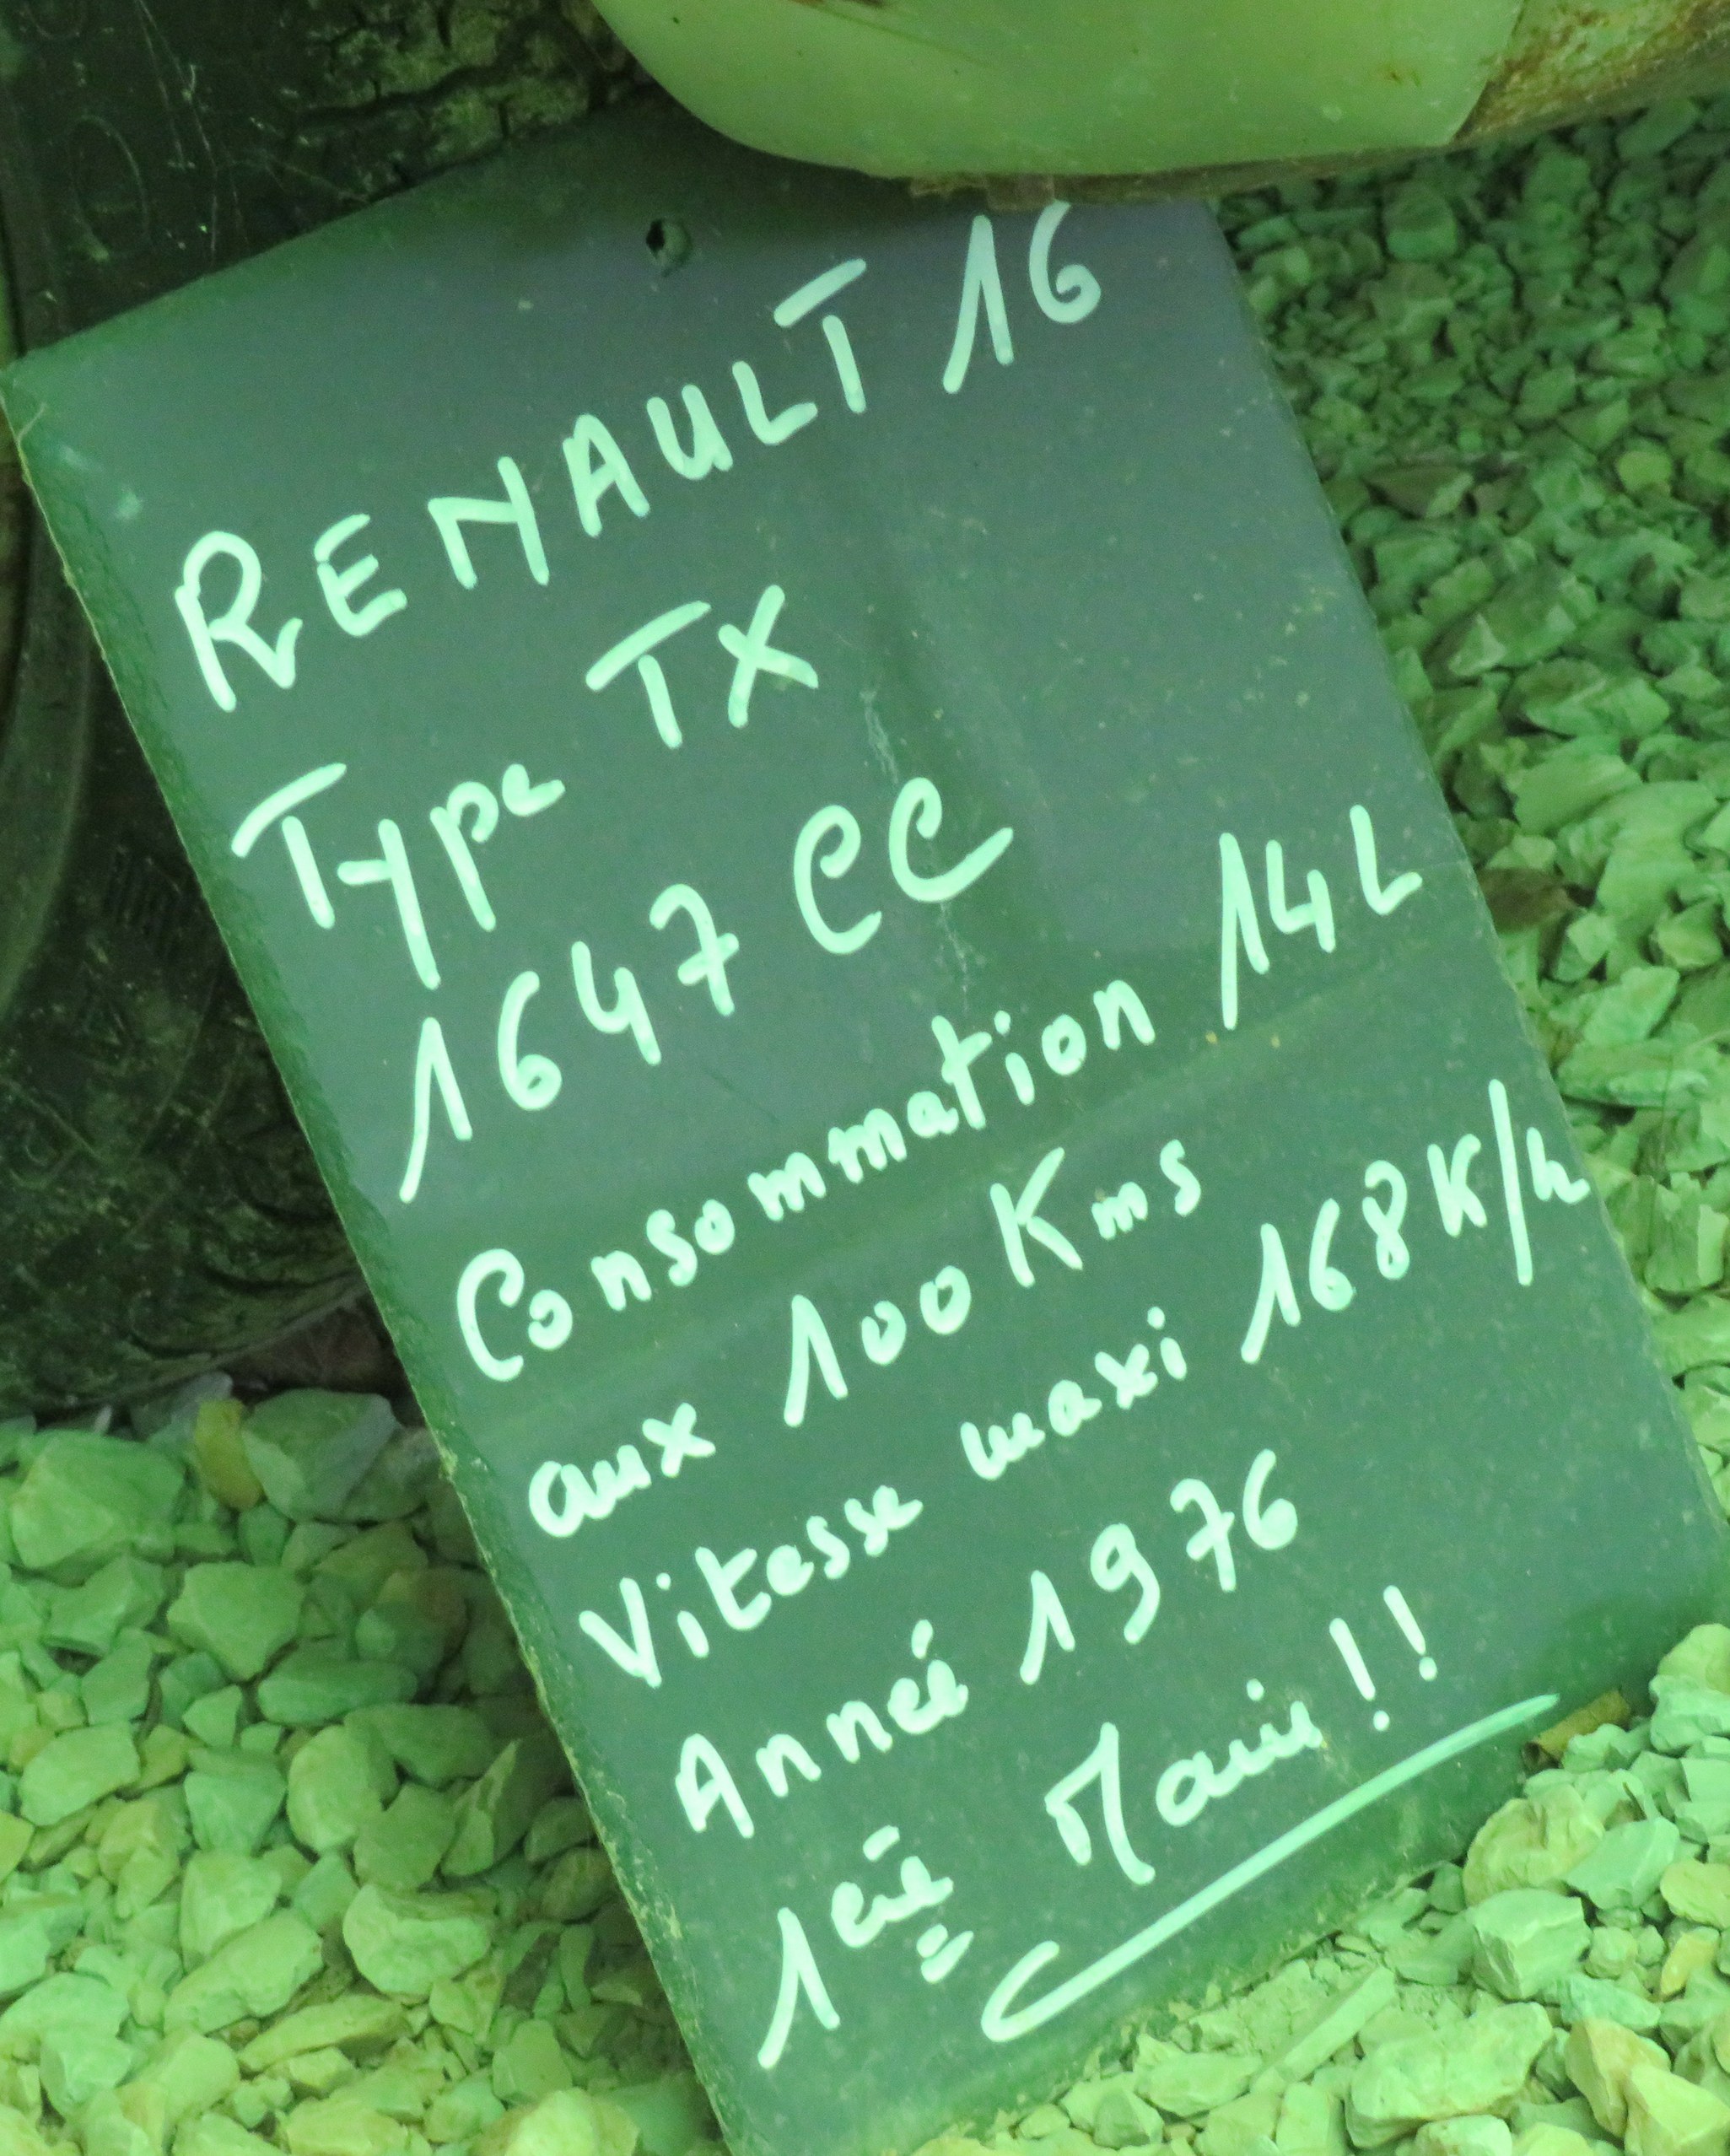 RENAULT 16
Type TX
1647 CC
Consommation 14L
aux 100 Kms
Vitesse maxi 168 K/h
Année 1976
1ère Main !!